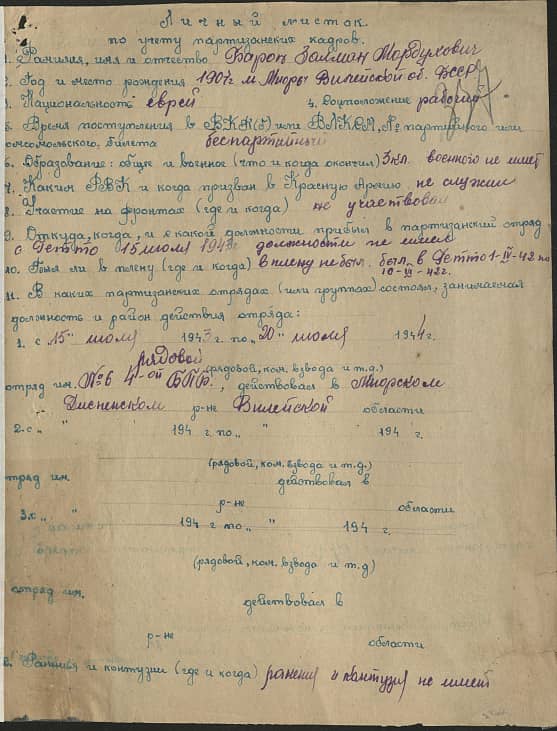 Личный листок
по учету партизанских кадров.
1. Фамилия, имя и отчество Барон Залман Мордухович
2. Год и место рождения 1907г м. Миоры Вилейской об. БССР
3. Национальность еврей 4. Соцположение рабочий
5. Время поступления в ВКП(б) или ВЛКСМ, № партийного или
комсомольского билета беспартийный
6. Образование: общее и военное (что и когда окончил) 3 кл. военного не имеет
7. Каким РВК и когда призван в Красную Армию не служил
8. Участие на фронтах (где и когда) не участвовал
9. Откуда, когда, и в какой должности прибыл в партизанский отряд
с Гетто 15 июля 1943г должности не имел
10. Был ли в плену (где и когда) в плену не был. был в Гетто 1-IV-42 по
10-VI-42г.
11. В каких партизанских отрядах (или группах) состоял, занимаемая
должность и район действия отряда:
1. с "15" июля 1943 г. по "20" июля 1944 г.
рядовой
(рядовой, ком. взвода и т.д.)
отряд им. №6 4-ой БПБ, действовал в Миорском
Дисненском р-не Вилейской области
2. с " " 194 г. по " " 194 г.
(рядовой, ком. взвода и т.д.)
отряд им. действовал в
р-не области
3. с " " 194 г. по " " 194 г.
(рядовой, ком. взвода и т.д)
отряд им. действовал в
р-не области
Ранения и контузии (где и когда) ранения и контузия не имеет